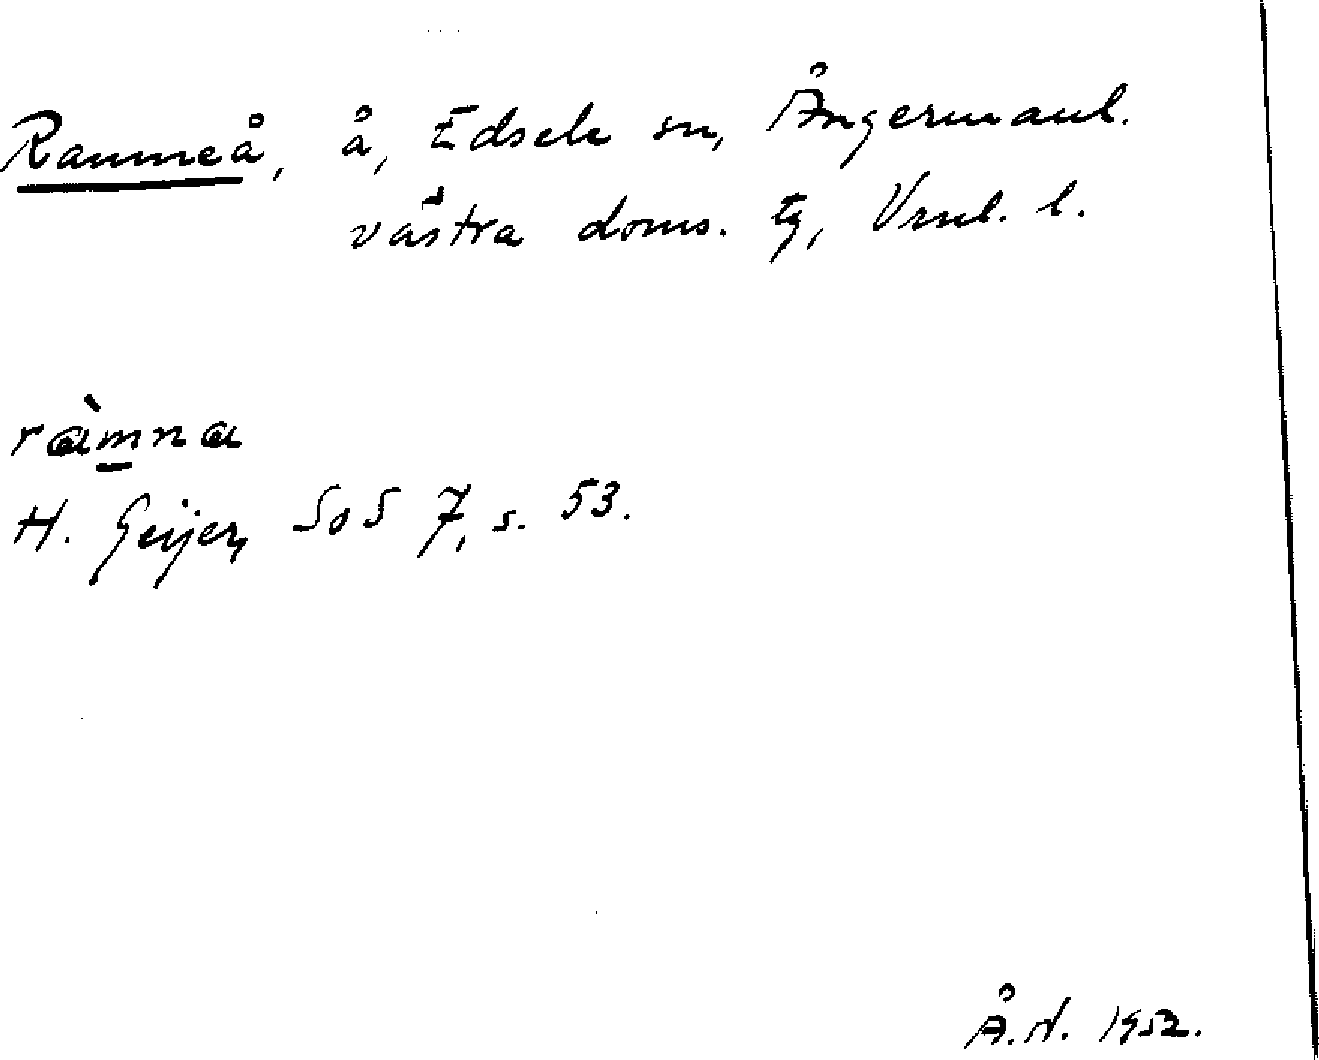 Ramneå, å, Edsele sn, Ångermanl.
västra doms. tg, Vrnl. l.
ràmna
H. Geijer, SoS 7, s. 53.
Å.N. 1952.